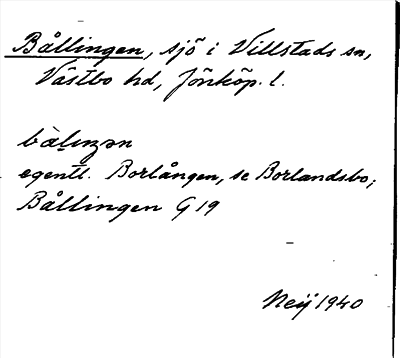 Bållingen, sjö i Villstads sn,
Västbo hd, Jönköp. l.
egentl. Borlången, se Borlandsbo;
Bållingen G 19
Neij 1940